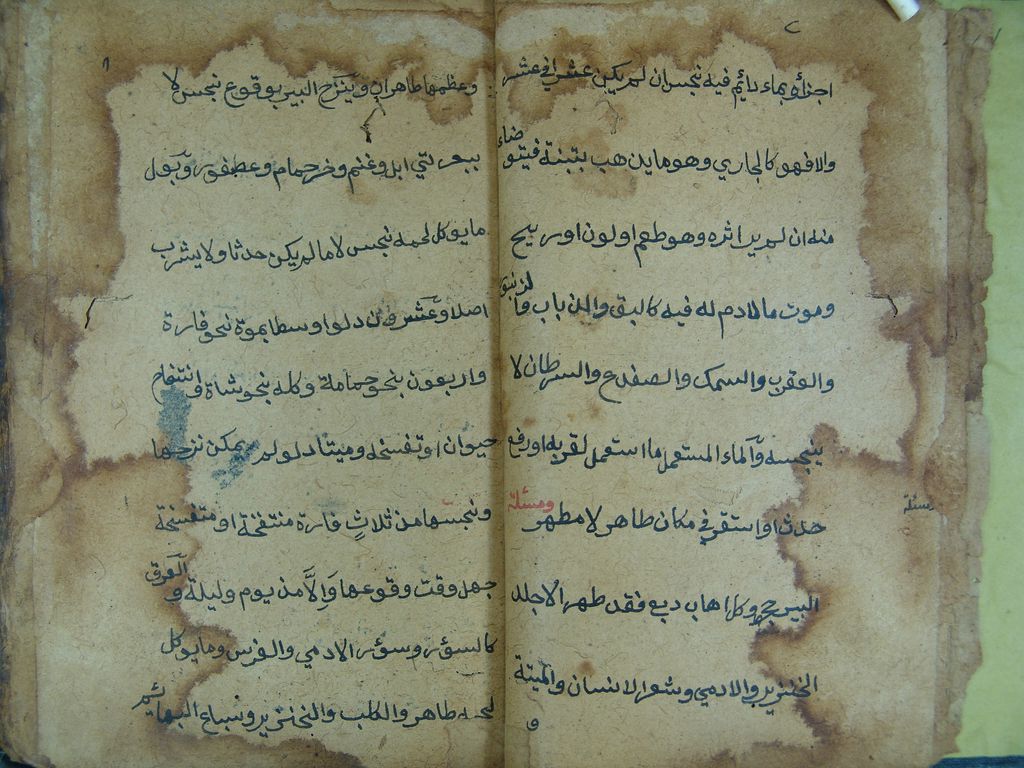 اجزاؤه بماء دائم فيه نجس ان لم يكن عشرا في عشر
والا فهو كالجاري وهو ما يذهب بتبنة فيتوضاء
منه ان لم ير اثره وهو طعم او لون او ريح
وموت ما لا دم له فيه كالبق والذباب والزنبور
والعقرب والسمك والضفدع والسرطان لا
ينجسه والماء المستعمل ما استعمل لقربة او رفع
حدث او استقر في مكان طاهر لا مطهر ومسئلة
مسئلة
البير جحط وكل اهاب دبغ فقد طهر الا جلد
الخنزير والادمي وشعر الانسان والميتة
و
وعظمها طاهران وينزح البير بوقوع نجس لا
ببعرتي ابل وغنم وخرء حمام وعصفور وبول
ما يوكل لحمه نجس لا ما لم يكن حدثا ولا يشرب
اصلا وعشرون دلوا وسطا بموت نحو فارة
واربعون بنحو حمامة وكله بنحو شاة وانتفاخ
حيوان او تفسخه وميتا دلو لو لم يمكن نزحها
ونجسها من ثلاث فارة منتفخة او متفسخة
جهل وقت وقوعها والا من يوم وليلة والعرق
كالسؤر وسؤر الادمي والفرس وما يوكل
لحمه طاهر والكلب والخنزير وسباع البهائم